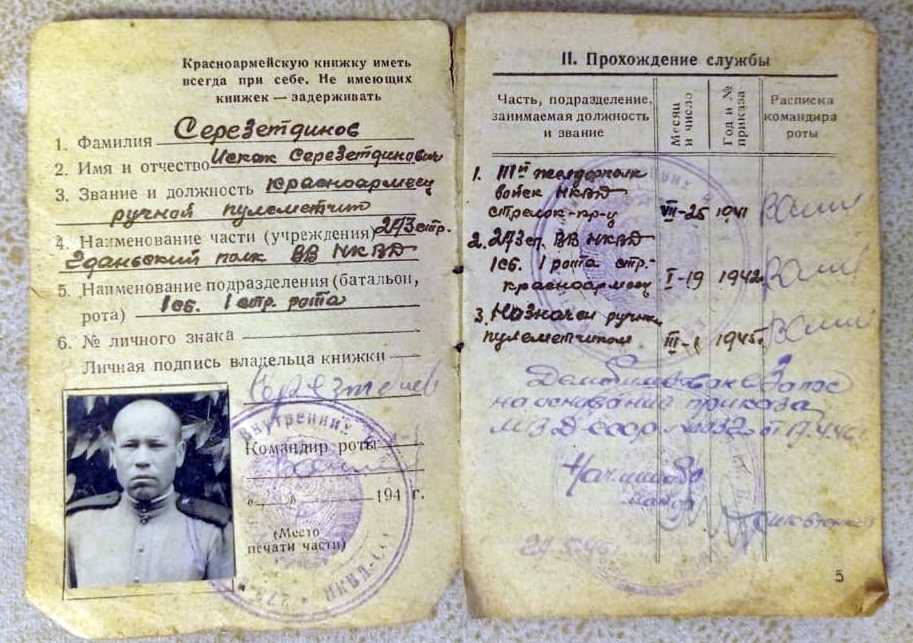 Красноармейскую книжку иметь
всегда при себе. Не имеющих
книжек — задерживать
1. Фамилия Серезетдинов
2. Имя и отчество Исхак Серезетдинович
3. Звание и должность красноармеец
ручной пулеметчик
4. Наименование части (учреждения) 273 стр.
Гданьский полк ВВ НКВД
5. Наименование подразделения (батальон,
рота) 1 сб. 1 стр. рота
6. № личного знака
Личная подпись владельца книжки —
Внутренних
Командир роты
„ “ 194 г.
(Место
печати части)
НКВД-СС
273
II. Прохождение службы
Часть, подразделение,
занимаемая должность
и звание
Месяц
и число
Год и №
приказа
Расписка
командира
роты
1. 111й желдорполк
войск НКВД
стрелок-кр-ц VII-25 1941
2. 273 сп. ВВ НКВД
1 сб. 1 рота стр.-
красноармеец I-19 1942.
3. Назначен ручным
пулеметчиком III-1 1945г.
Демобилизован в запас
на основании приказа
МВД СССР 17.4.46г
Нач. штаба
майор
29.5.46г
5